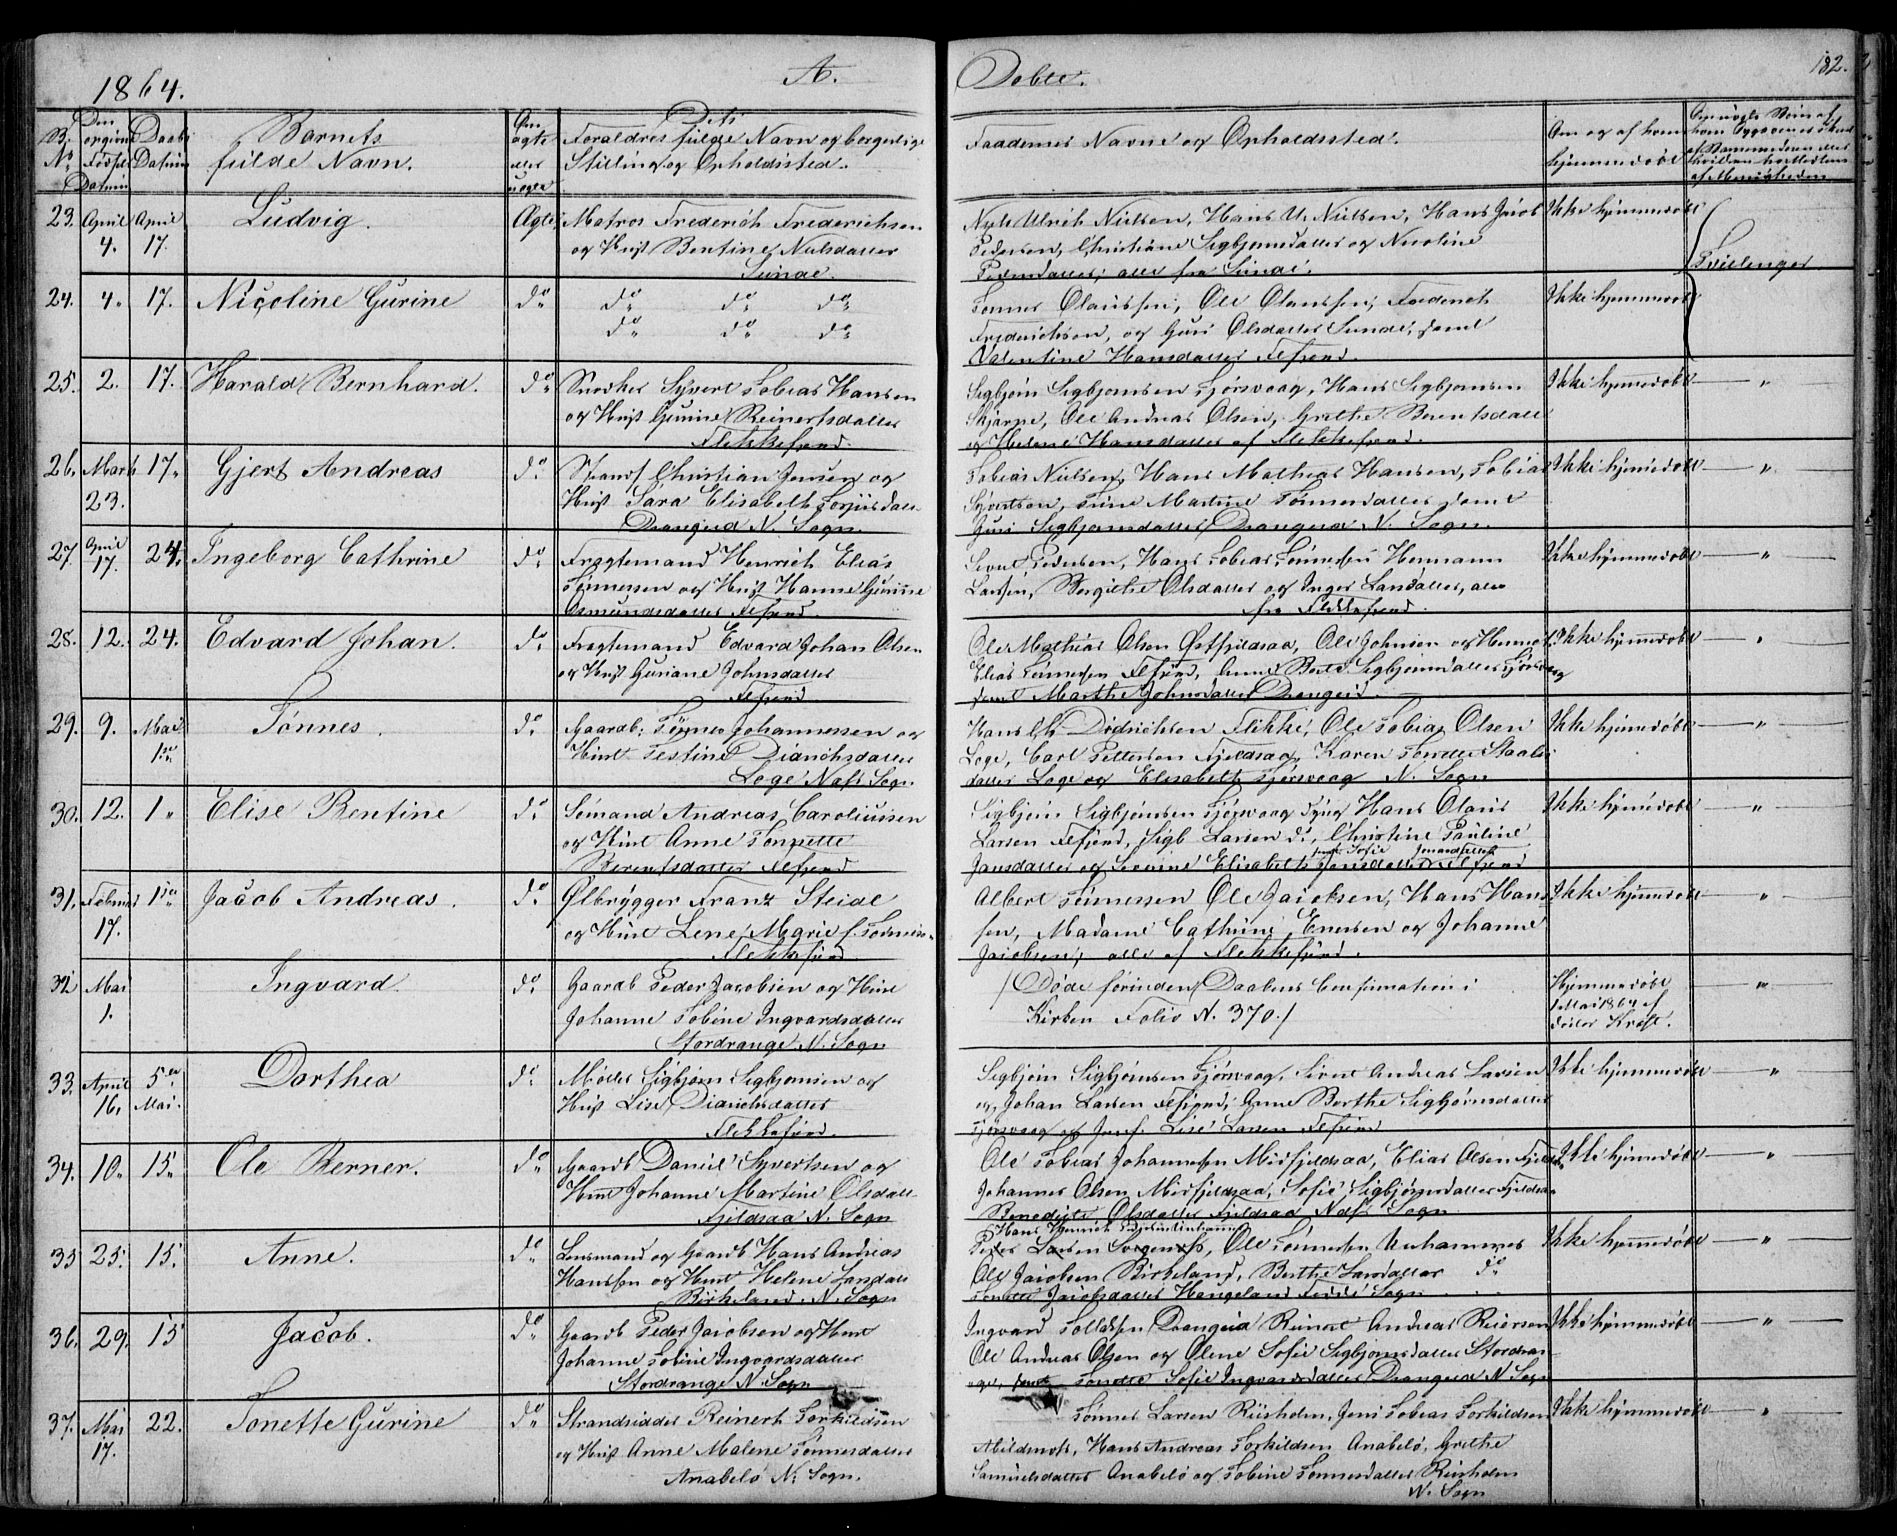 1864. A. Døbte. 182.
B. No Den
Fødsels Datum
Daabs Datum
Barnets fulde Navn.
Om ægte eller uægte
Forældres fulde Navn og borgerlige Stilling og Opholdssted.
Faddernes Navne og Opholdssted.
Om og af hvem hjemmedøbt
23. April 4. April 17. Ludvig. Ægte
Matros Frederich Frederichsen
og Hust Bentine Nielsdatter
Sunde.
Niels Ulrich Nielsen, Hans U. Nielsen, Hans Jacob
Pedersen, Christiane Sigbjørnsdatter og Nicoline
Pedersdatter, alle fra Sunde.
Ikke hjemmedøbt
Tvillinger
24. 4. 17. Nicoline Gurine do
do do do
do do do
Tønnes Olaussen, Ole Olaussen, Frederich
Frederichsen, og Guri Olsdatter Sunde, samt
Valentine Hansdatter Flfjord.
Ikke hjemmedøbt
25. 2. 17. Harald Bernhard. do
Snedker Syvert Tobias Hansen
og Hust Gurine Reinertsdatter
Flekkefjord.
Sigbjørn Sigbjørnsen Tjørsvaag, Hans Sigbjørnsen
Skjerpe, Ole Andreas Olsen, Grethe Berentsdatter
og Helene Hansdatter af Flekkefjord.
Ikke hjemmedøbt — " —
26. Marts 23. 17. Gjert Andreas do
Strands Christian Jensen og
Hust Sara Elisabeth Torjusdatr
Drangeid N. Sogn.
Tobias Nielsen, Hans Mathias Hansen, Tobias
Syvertsen, Tine Martine Tønnesdatter samt
Guri Sigbjørnsdatter Drangeid N. Sogn.
Ikke hjemmedøbt — " —
27. April 17. 24. Ingeborg Cathrine do
Fragtemand Henrich Elias
Tønnessen og Hust Hanne Gurine
Osmundsdatter Flfjord
Sivert Pedersen, Hans Tobias Tønnessen Hermann
Larsen, Bergithe Olsdatter og Inger Larsdatter, alle
fra Flekkefjord.
Ikke hjemmedøbt — " —
28. 12. 24. Edvard Johan. do
Fragtemand Edvard Johan Olsen
og Hust Guriane Johnsdatter
Flfjord
Ole Mathias Olsen Østfjeldsaa, Ole Johnsen og Henrich
Elias Tønnessen Flfjord, Anne Berthe Sigbjørnsdatter Tjørsvaag
samt Marthe Johnsdatter Drangeid.
Ikke hjemmedøbt — " —
29. 9. Mai 1ste Tønnes. do
Gaardb. Tønnes Johannessen og
Hust Testine Didrichsdatter
Loge Næs Sogn
Hans Chr. Didrichsen Flikke, Ole Tobias Olsen
Loge, Carl Pettersen Fjeldsaa, Karen Tonette Staales
datter Loge og Elisabeth Tjørsvaag N. Sogn
Ikke hjemmedøbt — " —
30. 12. 1. Elise Bentine do
Sømand Andreas Caroliussen
og Hust Anne Tonnette
Berentsdatter Flfjord
Sigbjørn Sigbjørnsen Tjørsvaag Hans Olaus
Larsen Flfjord, Sigb Larsen do, Christine Pauline
Jansdatter og Severine Elisabeth Jansdatter Flfjord
Ikke hjemmedøbt — " —
31. Februar 17. 1ste Jacob Andreas. do
Ølbrygger Franz Steide
og Hust Lene Marie f.
Flekkefjord
Albert Tønnessen Ole Jacobsen, Hans Han-
sen, Madame Cathrine Enersen og Johanne
Jacobsen, alle af Flekkefjord.
Ikke hjemmedøbt — " —
32 Mai 1. Ingvard. do
Gaardb Peder Jacobsen og Hust
Johanne Tobine Ingvardsdatter
Stordrange N. Sogn
/ Døde forinden Daabens Confirmation i
Kirken Folio N. 370. /
Hjemmedøbt
1 Mai 1864 af
Krøst.
— " —
33. April 16. 5te Mai. Dorthea do
Møller Sigbjørn Sigbjørnsen og
Hust Lise Didrichsdatter
Flekkefjord.
Sigbjørn Sigbjørnsen Tjørsvaag, Sivert Andreas Larsen
og Johan Larsen Flfjord, Anne Berthe Sigbjørnsdatter
Tjørsvaag og Jomf. Lise Larsen Flfjord
Ikke hjemmedøbt — " —
34. 10. 15. Ole Berner. do
Gaardb Daniel Syvertsen og
Hust Johanne Martine Olsdatr
Fjeldsaa N. Sogn
Ole Tobias Johannessen Midfjeldsaa, Elias Olsen Fjeldsaa
Johannes Olsen Midfjeldsaa, Sofie Sigbjørnsdatter Fjeldsaa
Benedicte Olsdatter Fjeldsaa Næs Sogn
Ikke hjemmedøbt — " —
35 25. 15. Anne. do
Lensmand og Gaardb Hans Andreas
Hanssen og Hust Helene Larsdatr
Birkeland N. Sogn
Hans Henrich
Peder Larsen, Ole Tønnessen Unhammer
Ole Jacobsen Birkeland, Berthe Larsdatter do
Tonette Jacobsdatter Hangeland Fede Sogn
Ikke hjemmedøbt — " —
36. 29. 15 Jacob. do
Gaardb Peder Jacobsen og Hust
Johanne Tobine Ingvardsdatter
Stordrange N. Sogn
Ingvard Tollaksen Drangeid Reinert Andreas Reiersen
Ole Andreas Olsen og Olene Sofie Sigbjørnsdatter Stordran-
ge, samt Tonette Sofie Ingvardsdatter Drangeid N. Sogn
Ikke hjemmedøbt — " —
37. Mai 17. 22. Tonette Gurine do
Strandsidder Reinert Torkildsen
og Hust Anne Malene Tønnesdatter
Anabelø N. Sogn.
Tønnes Larsen Risholm, Jens Tobias Torkildsen
Abildsnæs, Hans Andreas Torkildsen Anabelø, Grethe
Samuelsdatter Anabelø og Tobine Tønnesdatter Risholm
N. Sogn
Ikke hjemmedøbt — " —